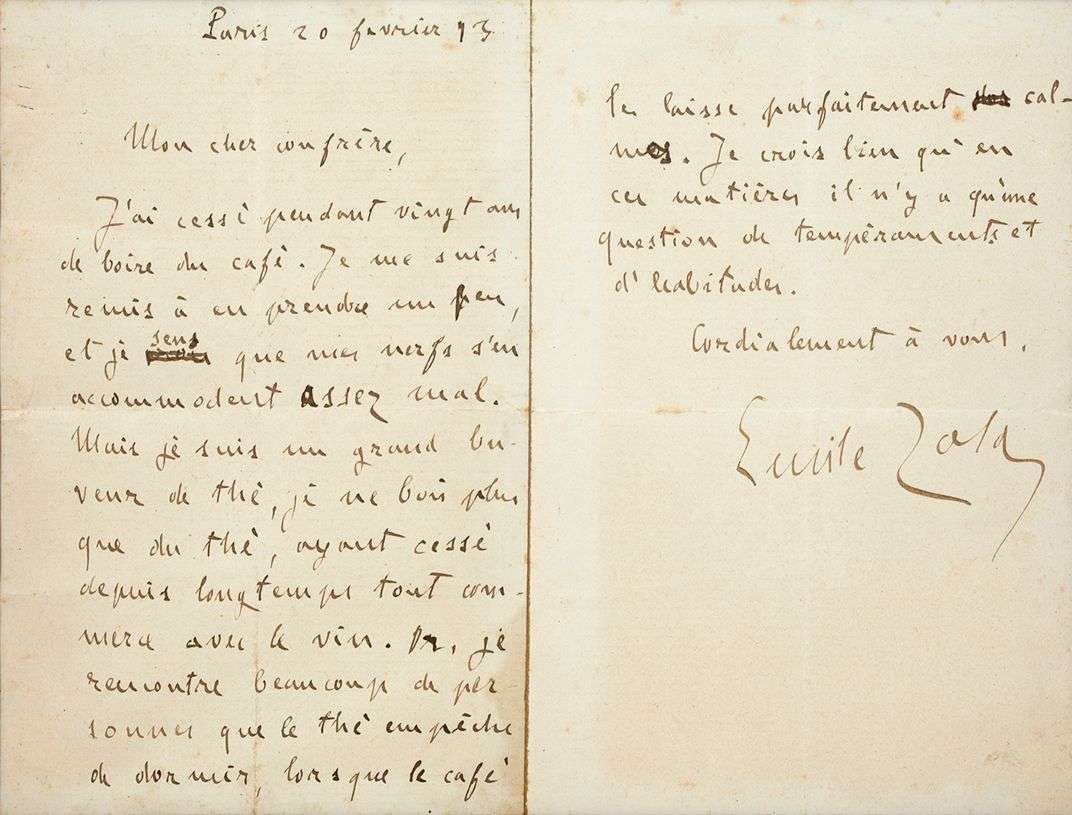 Paris 20 fevrier 93
Mon cher confrère,
J'ai cessé pendant vingt ans
de boire du café. Je me suis
remis à en prendre un peu,
et je sens que mes nerfs s'en
accommodent assez mal.
Mais je suis un grand bu-
veur de thé, je ne bois plus
que du thé, ayant cessé
depuis longtemps tout com-
merce avec le vin. Or, je
rencontre beaucoup de per-
sonnes que le thé empêche
de dormir, lorsque le café
les laisse parfaitement cal-
mes. Je crois bien qu'en
ces matières il n'y a qu'une
question de tempéraments et
d'habitudes.
Cordialement à vous.
Emile Zola